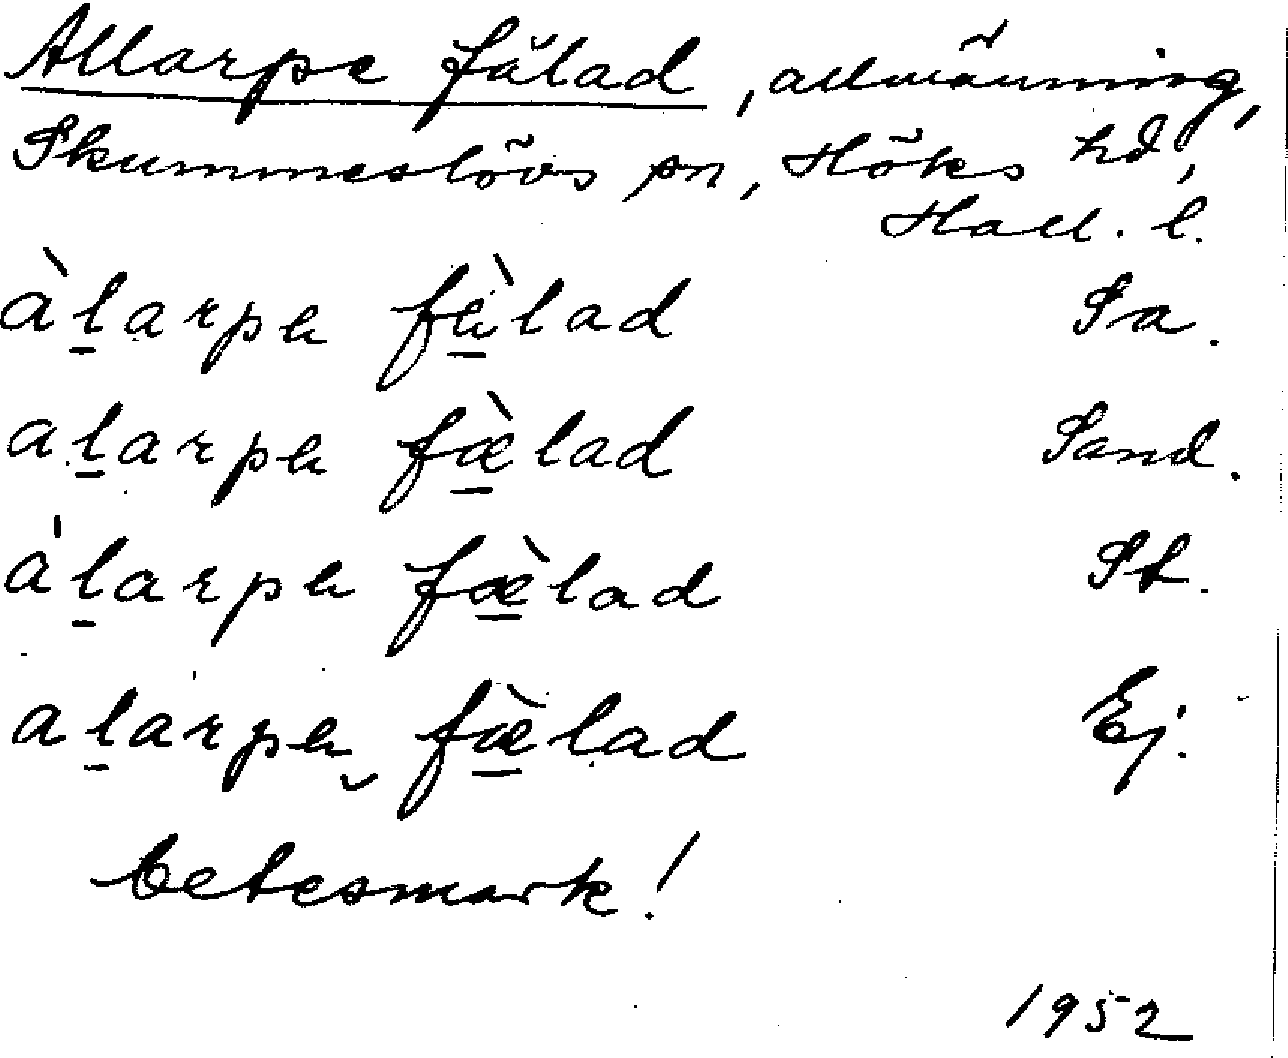 Allarpe fälad, allmänning,
Skummeslövs sn, Höks hd,
Hall. l.
àl̠arpə fæ̠̀lad Sa.
al̠arpə fæ̠̀lad Sand.
àl̠arpə fæ̠̀lad St.
al̠arpə fæ̠̀lad Ej.
betesmark!
1952